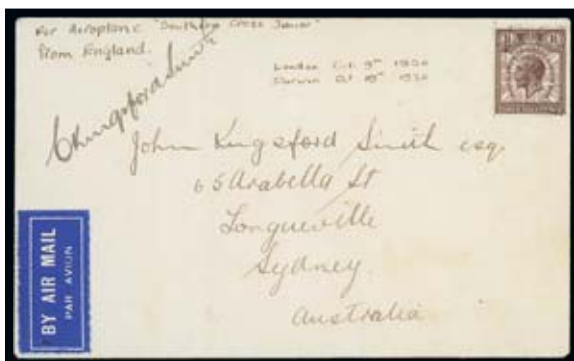 Per Aeroplane "Southern Cross Junior"
from England.
London Oct 9th 1930
Darwin Oct 19th 1930
CKingsford Smith
John Kingsford Smith esq.
65 Arabella St
Longueville
Sydney.
Australia
BY AIR MAIL
PAR AVION